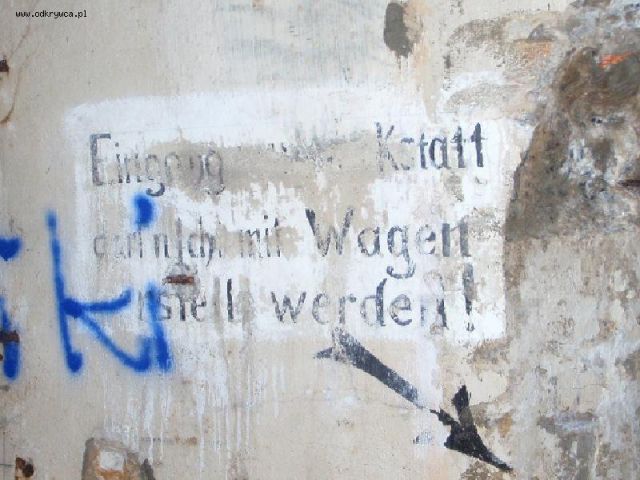 www.odkrywca.pl
Eingang K.statt
darf nicht mit Wagen
werden!
ki